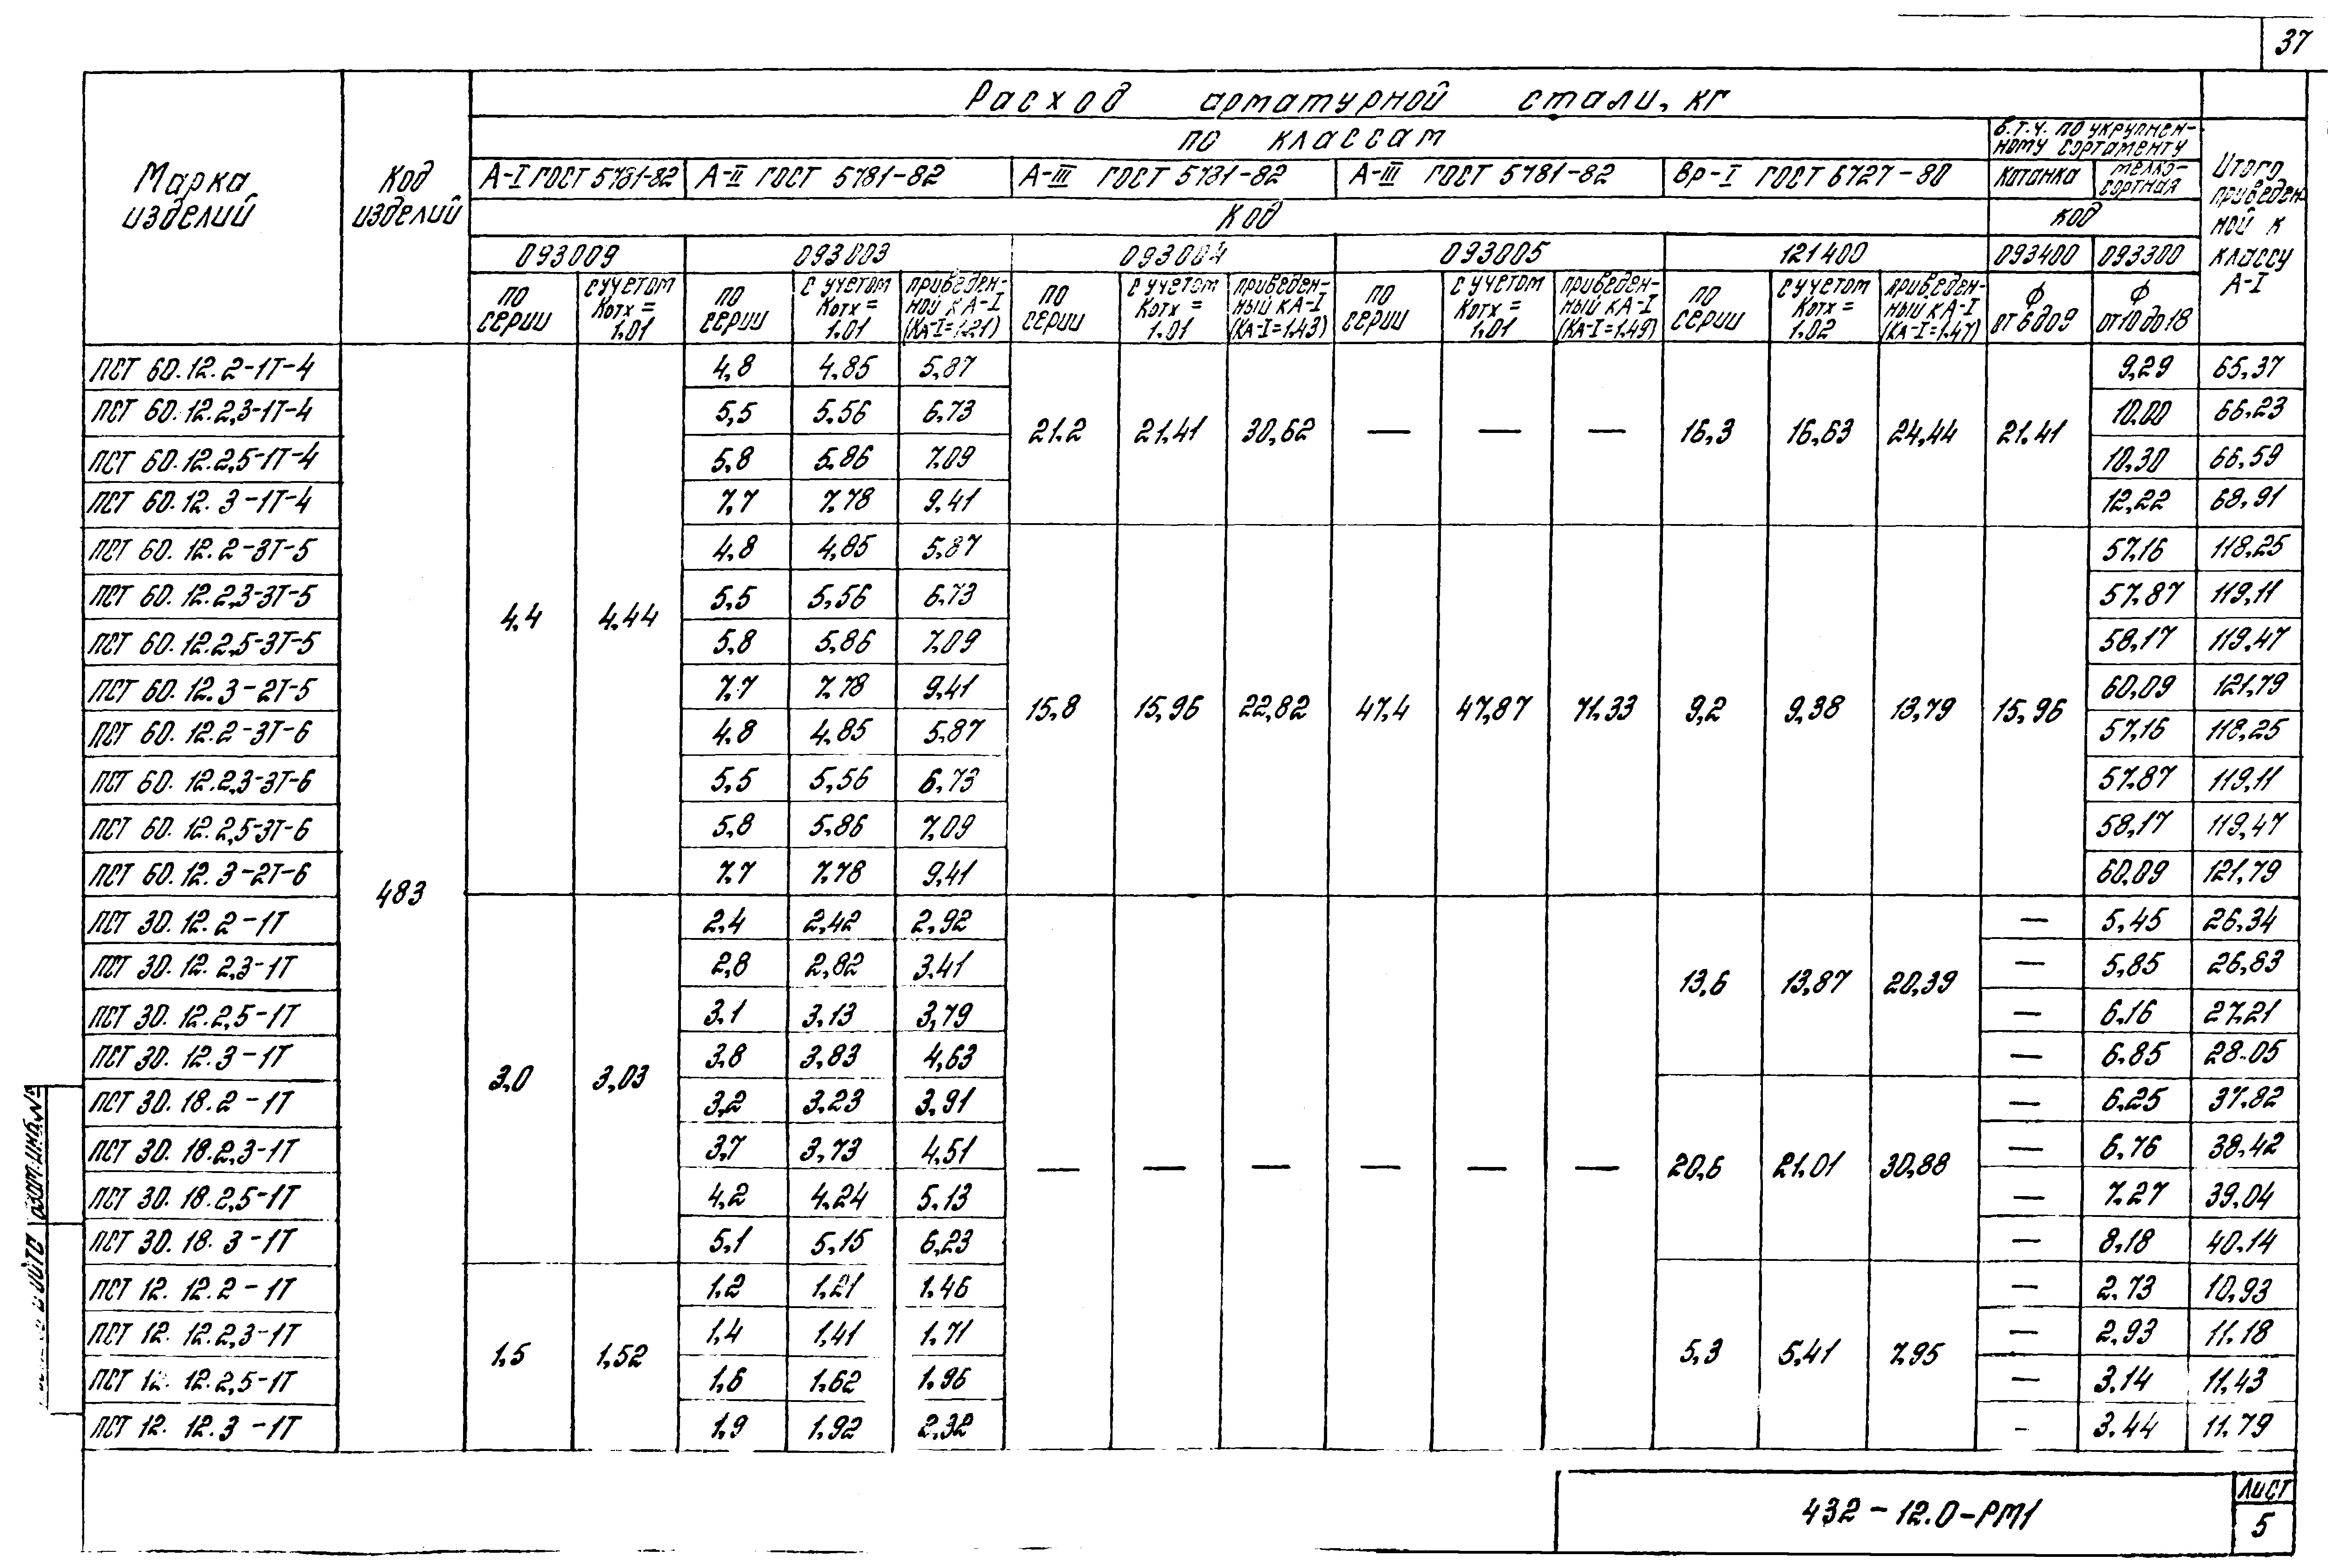 37
Расход арматурной стали, кг
по классам
в.т.ч. по укрупнен-
ному сортаменту
Марка
изделий
Код
изделий
А-I ГОСТ 5781-82 А-II ГОСТ 5781-82 А-III ГОСТ 5781-82 А-III ГОСТ 5781-82 Вр-I ГОСТ 6727-80 Катанка мелко-
сортная
Итого,
приведен-
ной к
классу
А-I
Код Код
093009 093003 093004 093005 121400 093400 093300
по серии с учетом Котх = 1.01 по серии с учетом Котх = 1.01 приведен-ной к А-I (КА-I=1.21) по серии с учетом Котх = 1.01 приведен-ный к А-I (КА-I=1.43) по серии с учетом Котх = 1.01 приведен-ный к А-I (КА-I=1.49) по серии с учетом Котх = 1.02 приведен-ный к А-I (КА-I=1.47) ф от 6 до 9 ф от 10 до 18
ПСТ 60.12.2-1Т-4 4,8 4,85 5,87 9,29 65,37
ПСТ 60.12.2,3-1Т-4 5,5 5,56 6,73 10,00 66,23
21.2 21,41 30,62 — — — 16,3 16,63 24,44 21.41
ПСТ 60.12.2,5-1Т-4 5,8 5,86 7,09 10,30 66,59
ПСТ 60.12.3-1Т-4 7,7 7,78 9,41 12,22 68,91
ПСТ 60.12.2-3Т-5 4,8 4,85 5,87 57,16 118,25
ПСТ 60.12.2,3-3Т-5 5,5 5,56 6,73 57,87 119,11
4,4 4,44
ПСТ 60.12.2,5-3Т-5 5,8 5,86 7,09 58,17 119,47
ПСТ 60.12.3-2Т-5 7,7 7,78 9,41 60,09 121,79
15,8 15,96 22,82 47,4 47,87 71,33 9,2 9,38 13,79 15,96
ПСТ 60.12.2-3Т-6 4,8 4,85 5,87 57,16 118,25
ПСТ 60.12.2,3-3Т-6 5,5 5,56 6,73 57,87 119,11
ПСТ 60.12.2,5-3Т-6 5,8 5,86 7,09 58,17 119,47
ПСТ 60.12.3-2Т-6 7,7 7,78 9,41 60,09 121,79
483
ПСТ 30.12.2-1Т 2,4 2,42 2,92 — 5,45 26,34
ПСТ 30.12.2,3-1Т 2,8 2,82 3,41 — 5,85 26,83
13,6 13,87 20,39
ПСТ 30.12.2,5-1Т 3,1 3,13 3,79 — 6,16 27,21
ПСТ 30.12.3-1Т 3,8 3,83 4,63 — 6,85 28.05
3,0 3,03
ПСТ 30.18.2-1Т 3,2 3,23 3,91 — 6,25 37,82
ПСТ 30.18.2,3-1Т 3,7 3,73 4,51 — 6,76 38,42
— — — — — — 20,6 21,01 30,88
ПСТ 30.18.2,5-1Т 4,2 4,24 5,13 — 7,27 39,04
ПСТ 30.18.3-1Т 5,1 5,15 6,23 — 8,18 40,14
ПСТ 12.12.2-1Т 1,2 1,21 1,46 — 2,73 10,93
ПСТ 12.12.2,3-1Т 1,4 1,41 1,71 — 2,93 11,18
1,5 1,52 5,3 5,41 7,95
ПСТ 12.12.2,5-1Т 1,6 1,62 1,96 — 3,14 11,43
ПСТ 12.12.3-1Т 1,9 1,92 2,32 - 3,44 11,79
Взам.инв.№
432-12.0-РМ1
Лист
5